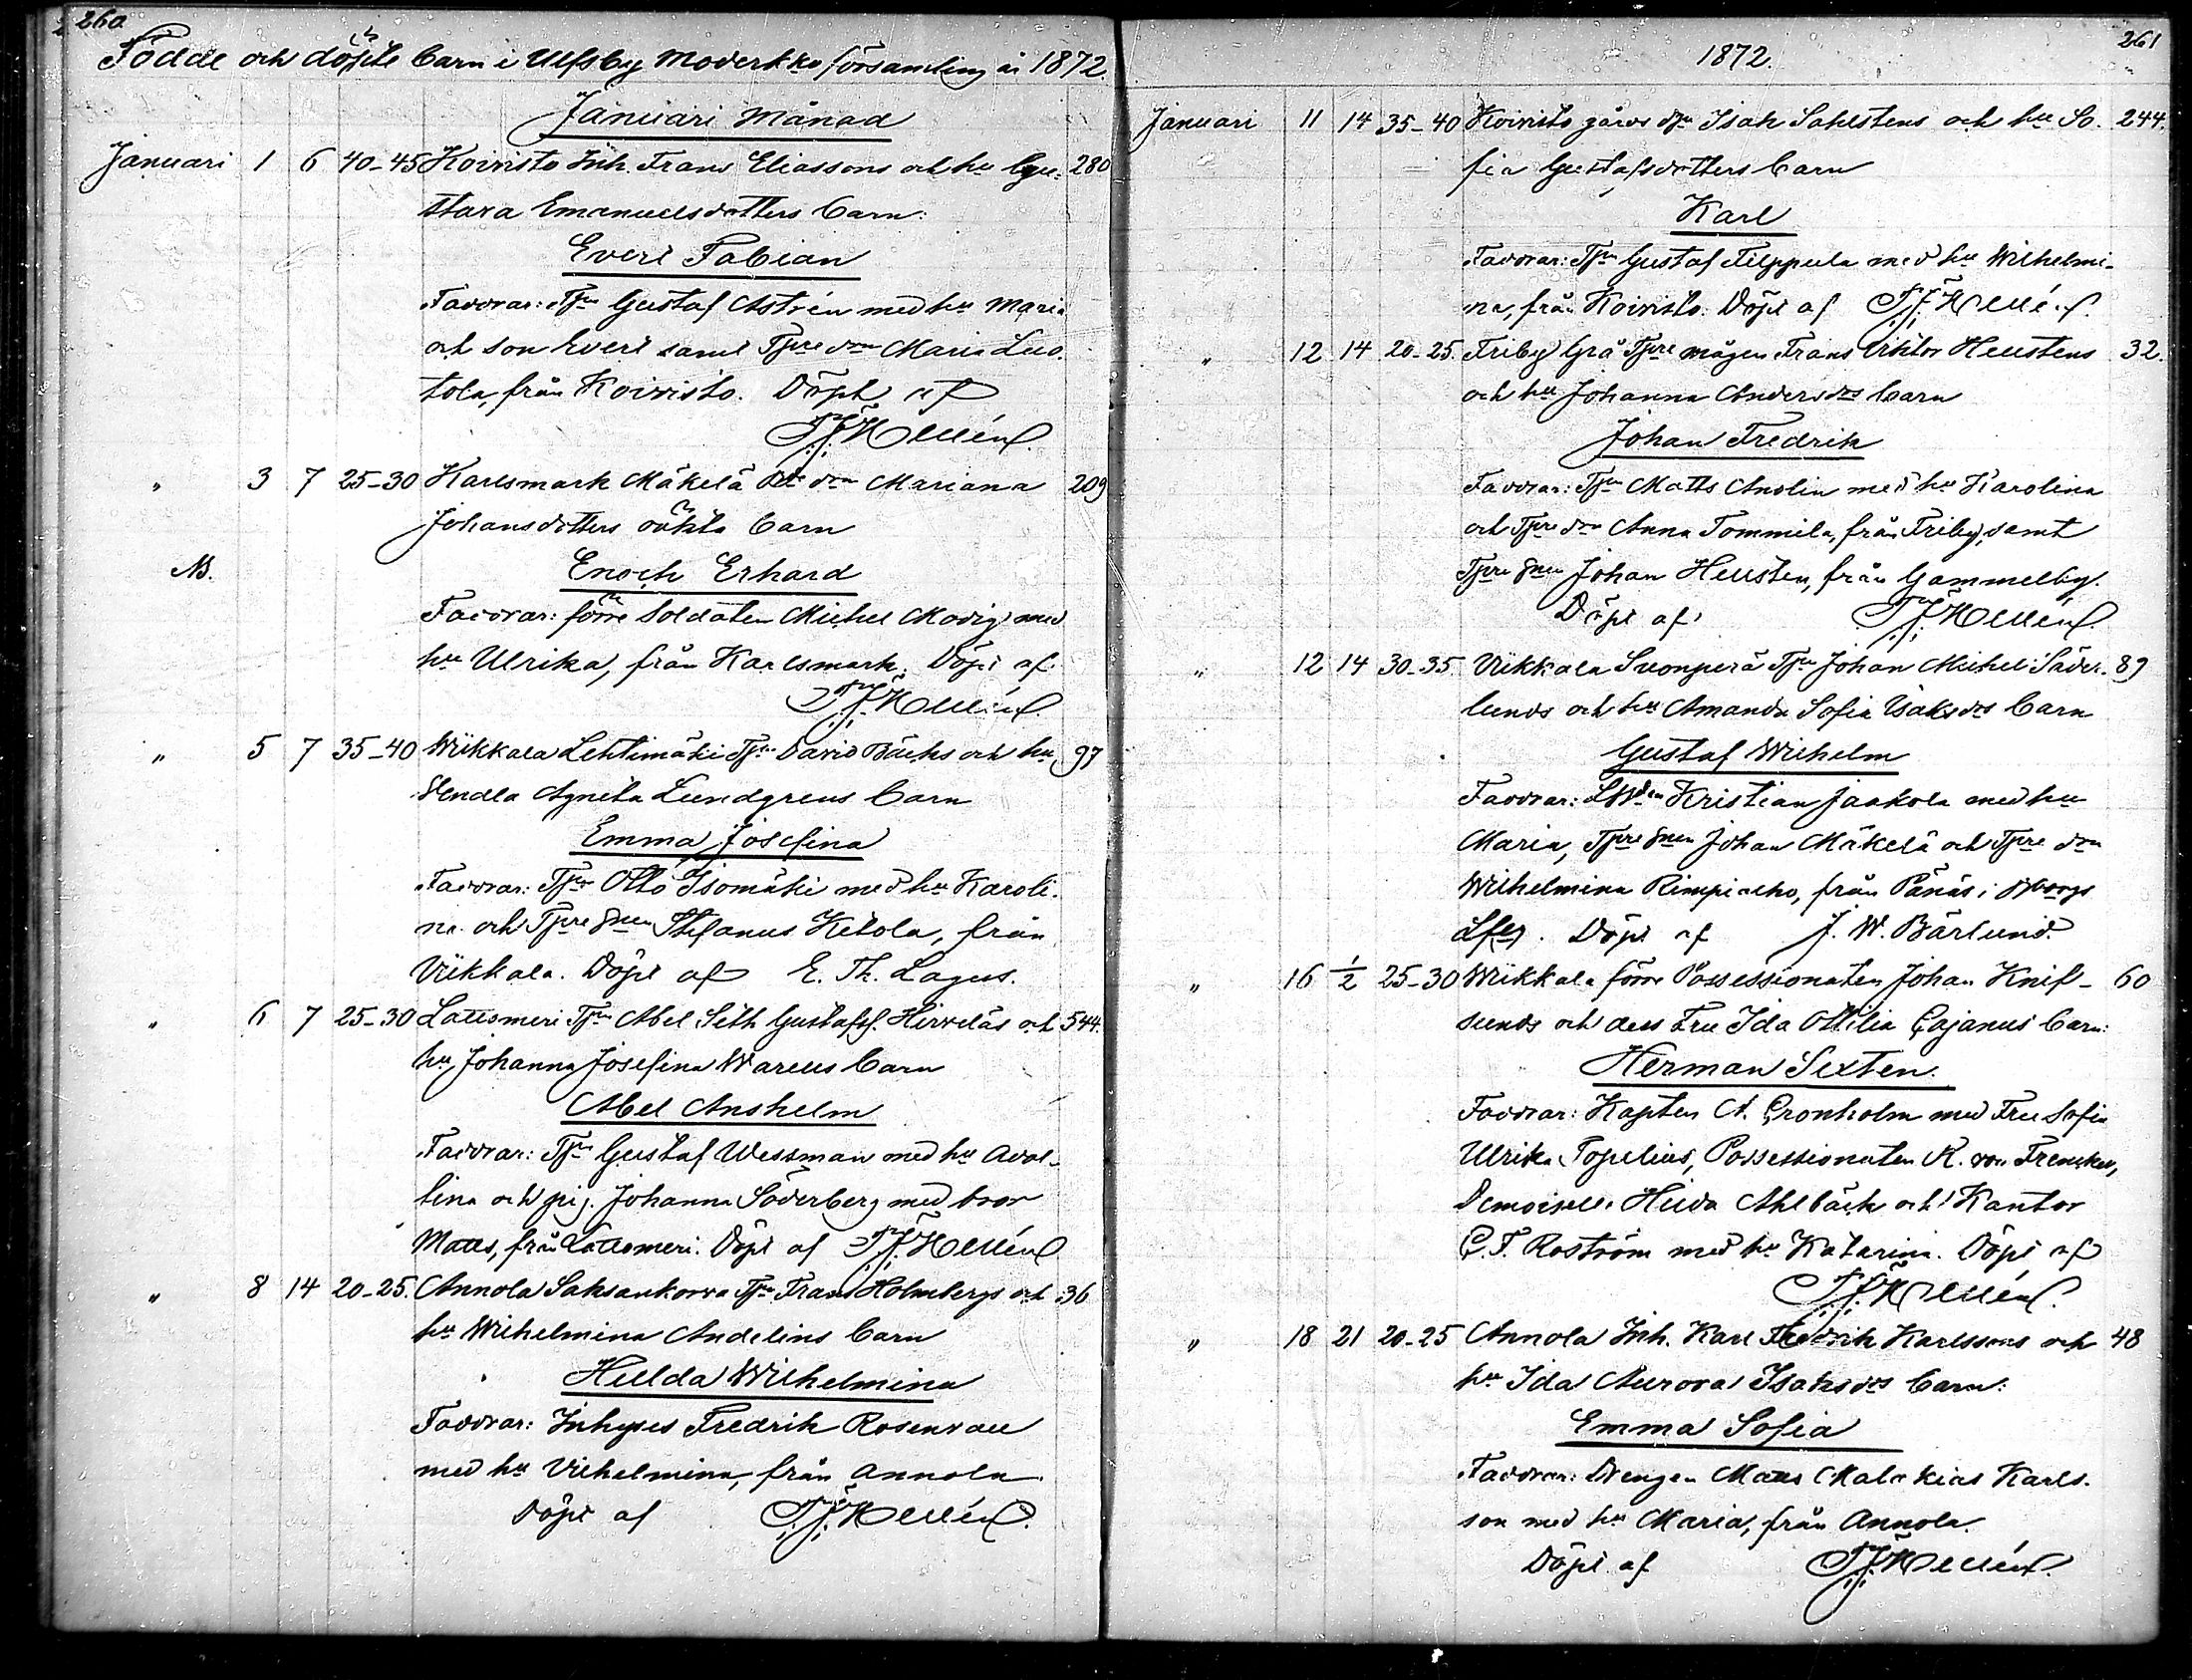 260
Födde och döpte barn i Ulfsby Moderkko församling år 1872.
Januari Månad
Januari 1 6 40-45 Koivisto Inh. Frans Eliassons och hu Gu- 280
stava Emanuelsdotters barn:
Evert Fabian
Faddrar: Tpn Gustaf Astrén med hu Maria
och son Evert samt Tpre dn Maria Luo-
tola, från Koivisto. Döpt af
F.J. Hellén.
" 3 7 25-30 Karlsmark Mäkelä dn Mariana 209
Johansdotters oäkta barn
NB. Enoch Erhard
Faddrar: förre Soldaten Michel Modig med
hu Ulrika, från Karlsmark. Döpt af
F.J. Hellén.
" 5 7 35-40 Wiikkala Lehtimäki Tpn David Bäcks och hu 97
Vendla Agneta Lundgrens barn
Emma Josefina
Faddrar: Tpn Otto Isomäki med hu Karoli-
na och Tpre snen Stefanus Ketola, från
Viikkala. Döpt af E. Th. Lagus.
" 6 7 25-30 Lattomeri Tpn Abel Seth Gustafss. Hirveläs och 544.
hu Johanna Josefina Warells barn
Abel Anshelm
Faddrar: Tpn Gustaf Wessman med hu Adol-
fina och pig. Johanna Söderberg med bror
Matts, från Lattomeri. Döpt af F.J. Hellén
" 8 14 20-25. Annola Saksankorva Tpn Frans Holmbergs och 36
hu Wilhelmina Andelins barn
Hulda Wilhelmina
Faddrar: Inhyses Fredrik Rosenvall
med hu Vilhelmina, från Annola.
Döpt af F.J. Hellén.
261
1872.
Januari 11 14 35-40 Koivisto gårds Isak Sahlstens och hu So- 244.
fia Gustafsdotters barn
Karl
Faddrar: Tpn Gustaf Filppula med hu Wilhelmi-
na, från Koivisto. Döpt af F.J. Hellén.
" 12 14 20-25. Friby Grå Tpre mågen Frans Viktor Hellstens 32.
och hu Johanna Andersds barn
Johan Fredrik
Faddrar: Tpn Matts Anolin med hu Karolina
och Tpre dn Anna Tommila, från Friby, samt
Tpre snen Johan Hellsten, från Gammelby.
Döpt af F.J. Hellén.
" 12 14 30-35. Viikkala Suonperä Tpn Johan Michel Söder- 89
lunds och hu Amanda Sofia Isaksds barn
Gustaf Wilhelm
Faddrar: Kristian Jaakola med hu
Maria, Tpre snen Johan Mäkelä och Tpre dn
Wilhelmina Rimpiaho, från Pänäs i
Döpt af J. W. Bärlund.
" 16 1/2 25-30 Wiikkala förre Possessionaten Johan Knif- 60
sunds och dess Fru Ida Ottilia Cajanus barn:
Herman Sixten.
Faddrar: Kapten A. Cronholm med Fru Sofia
Ulrika Topelius, Possessionaten K. von Frenckell,
Demoiselle Hilda Ahlbäck och Kantor
C. F. Roström med hu Katarina. Döpt af
F.J. Hellén.
" 18 21 20-25 Annola Inh. Karl Fredrik Karlssons och 48
hu Ida Aurora Isaksds barn:
Emma Sofia
Faddrar: Drengen Matts Malakias Karls-
son med hu Maria, från Annola.
Döpt af F.J. Hellén.